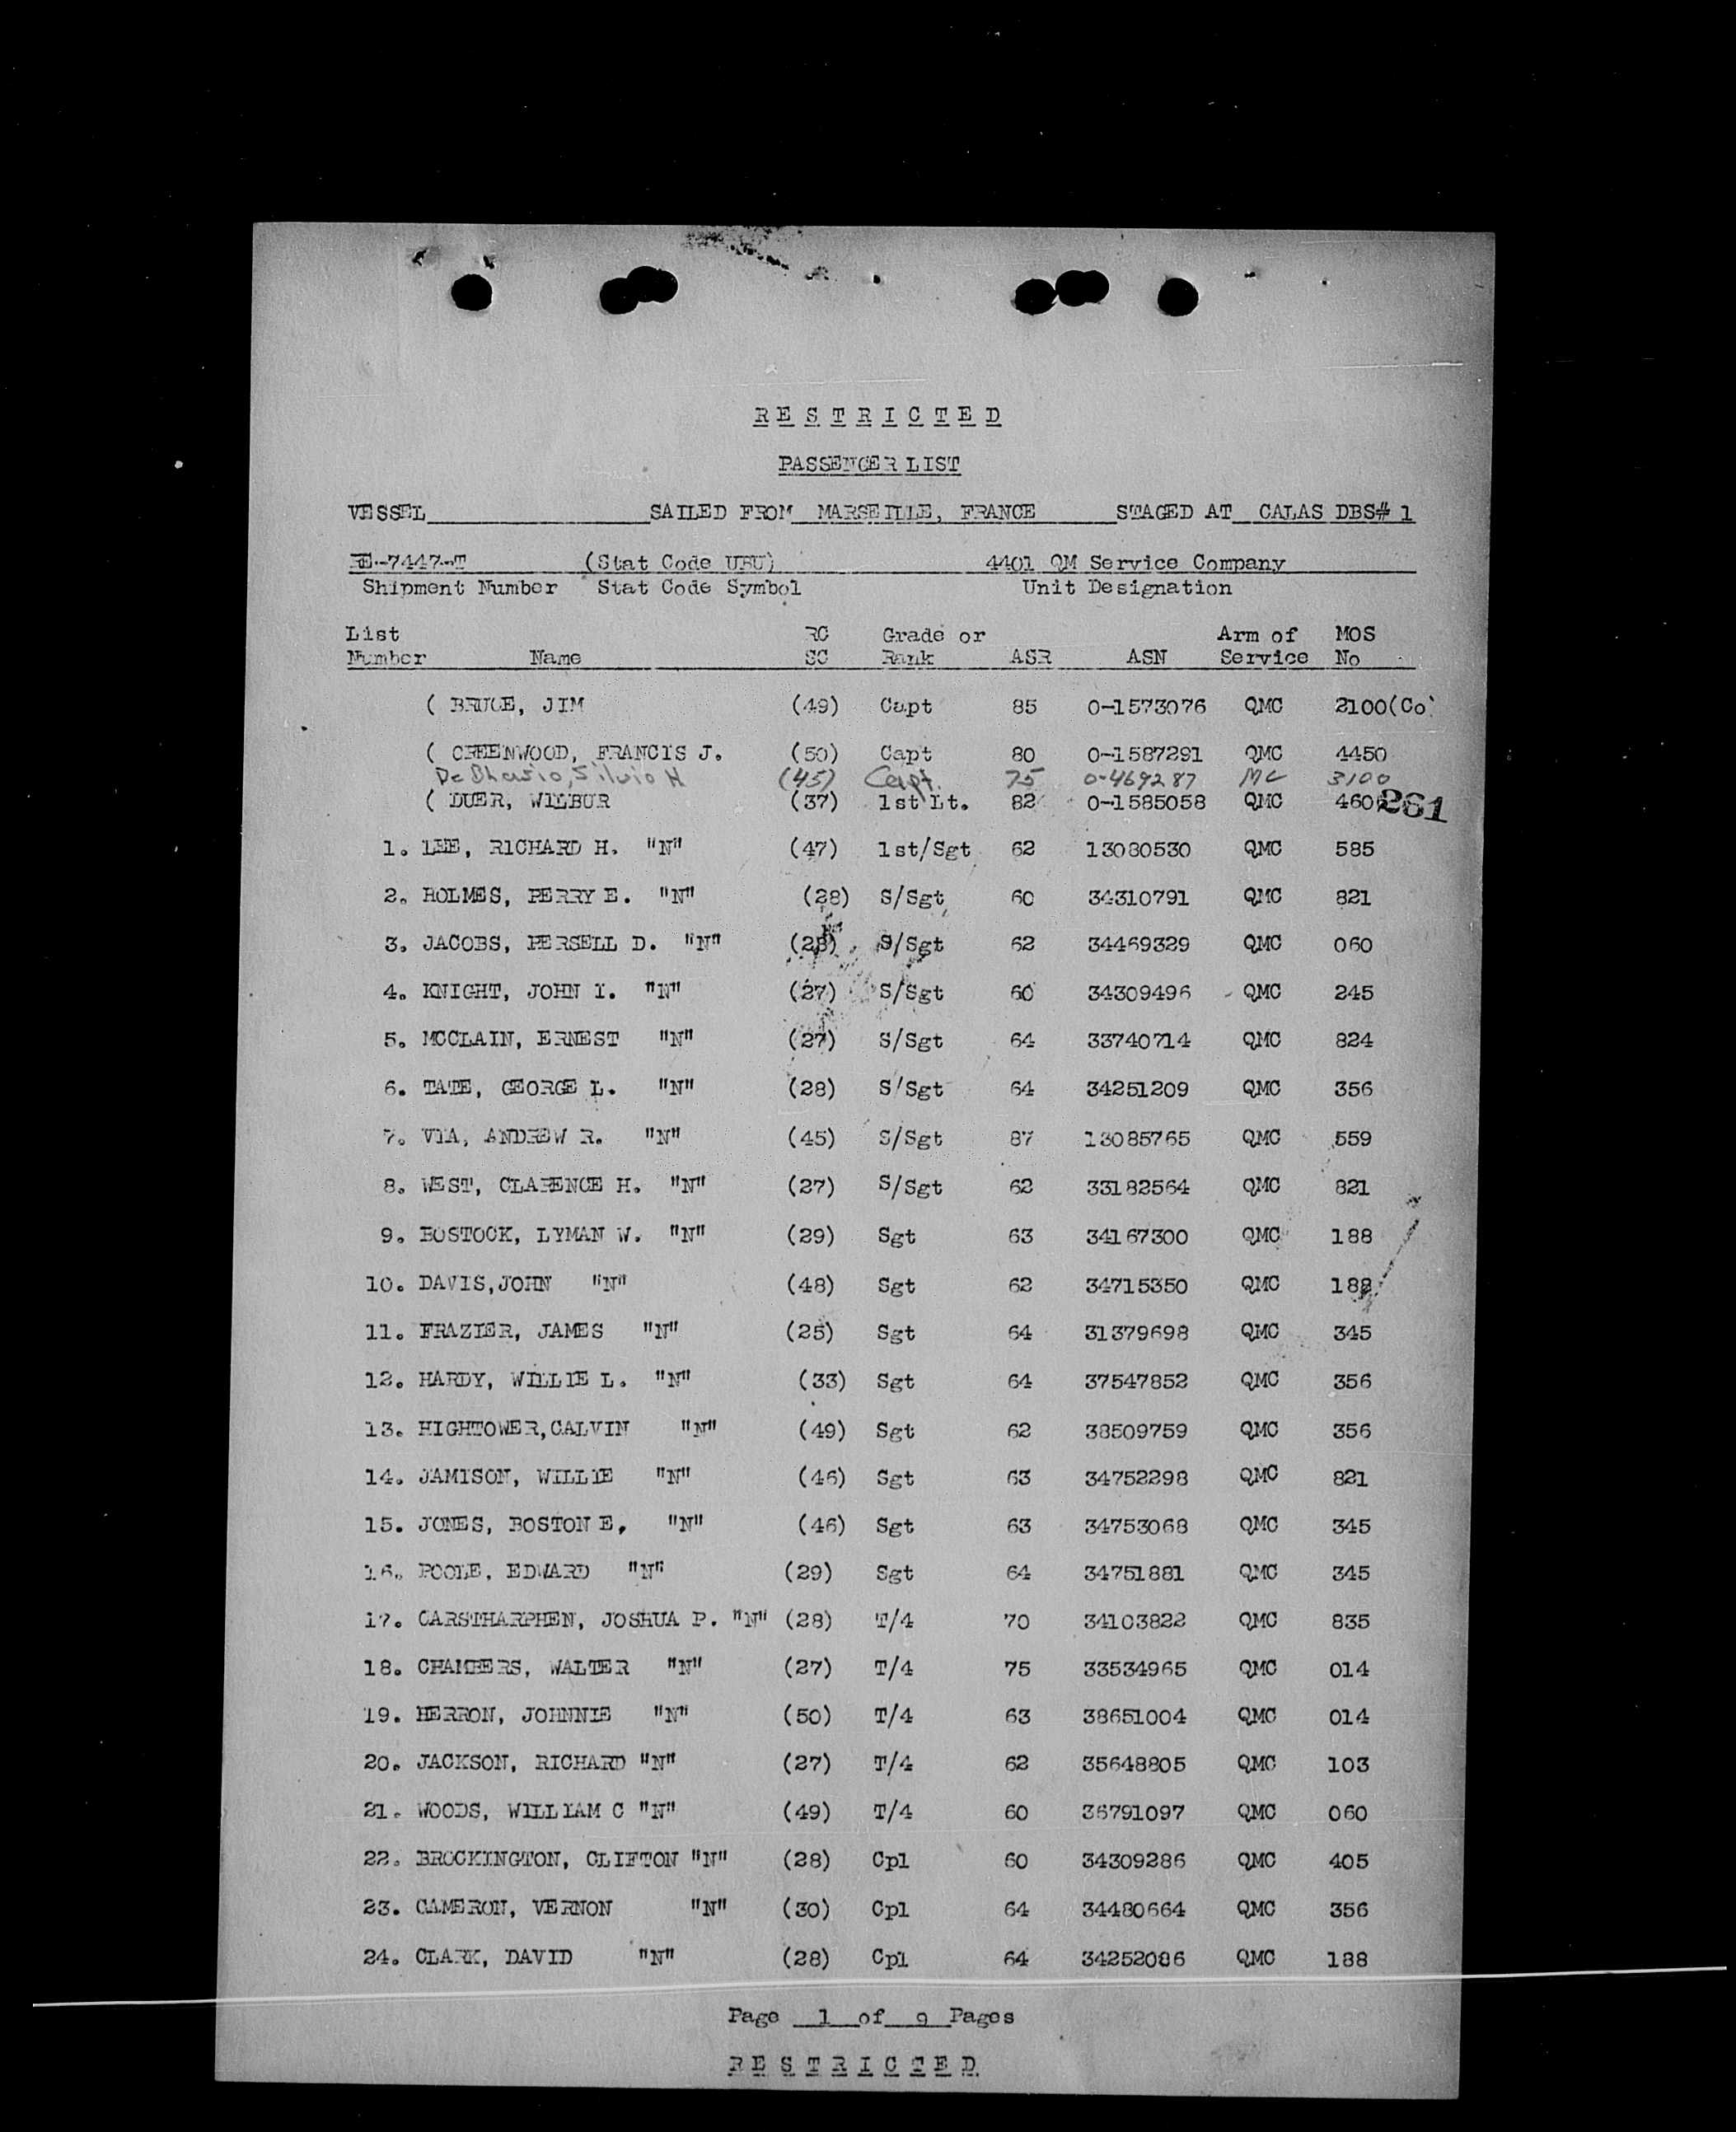 RESTRICTED
PASSENGER LIST
VESSEL SAILED FROM MARSEILLE, FRANCE STAGED AT CALAS DBS# 1
RE-7447-T (Stat Code UBU) 4401 QM Service Company
Shipment Number Stat Code Symbol Unit Designation
List RC Grade or Arm of MOS
Number Name SC Rank ASR ASN Service No
( BRUCE, JIM (49) Capt 85 0-1573076 QMC 2100(Co)
( GREENWOOD, FRANCIS J. (50) Capt 80 0-1587291 QMC 4450
Silvio H (45) Capt. 75 0-469287 MC 3100
( DUER, WILBUR (37) 1st Lt. 82 0-1585058 QMC 460
261
1. LEE, RICHARD H. "N" (47) 1st/Sgt 62 13080530 QMC 585
2. HOLMES, PERRY E. "N" (28) S/Sgt 60 34310791 QMC 821
3. JACOBS, PERSELL D. "N" (28) S/Sgt 62 34469329 QMC 060
4. KNIGHT, JOHN I. "N" (27) S/Sgt 60 34309496 QMC 245
5. MCCLAIN, ERNEST "N" (27) S/Sgt 64 33740714 QMC 824
6. TATE, GEORGE L. "N" (28) S/Sgt 64 34251209 QMC 356
7. VIA, ANDREW R. "N" (45) S/Sgt 87 13085765 QMC 559
8. WEST, CLARENCE H. "N" (27) S/Sgt 62 33182564 QMC 821
9. BOSTOCK, LYMAN W. "N" (29) Sgt 63 34167300 QMC 188
10. DAVIS,JOHN "N" (48) Sgt 62 34715350 QMC 188
11. FRAZIER, JAMES "N" (25) Sgt 64 31379698 QMC 345
12. HARDY, WILLIE L. "N" (33) Sgt 64 37547852 QMC 356
13. HIGHTOWER,CALVIN "N" (49) Sgt 62 38509759 QMC 356
14. JAMISON, WILLIE "N" (46) Sgt 63 34752298 QMC 821
15. JONES, BOSTON E, "N" (46) Sgt 63 34753068 QMC 345
16. POOLE, EDWARD "N" (29) Sgt 64 34751881 QMC 345
17. CARSTHARPHEN, JOSHUA P. "N" (28) T/4 70 34103822 QMC 835
18. CHAMBERS, WALTER "N" (27) T/4 75 33534965 QMC 014
19. HERRON, JOHNNIE "N" (50) T/4 63 38651004 QMC 014
20. JACKSON, RICHARD "N" (27) T/4 62 35648805 QMC 103
21. WOODS, WILLIAM C "N" (49) T/4 60 36791097 QMC 060
22. BROCKINGTON, CLIFTON "N" (28) Cpl 60 34309286 QMC 405
23. CAMERON, VERNON "N" (30) Cpl 64 34480664 QMC 356
24. CLARK, DAVID "N" (28) Cpl 64 34252086 QMC 188
Page 1 of 9 Pages
RESTRICTED